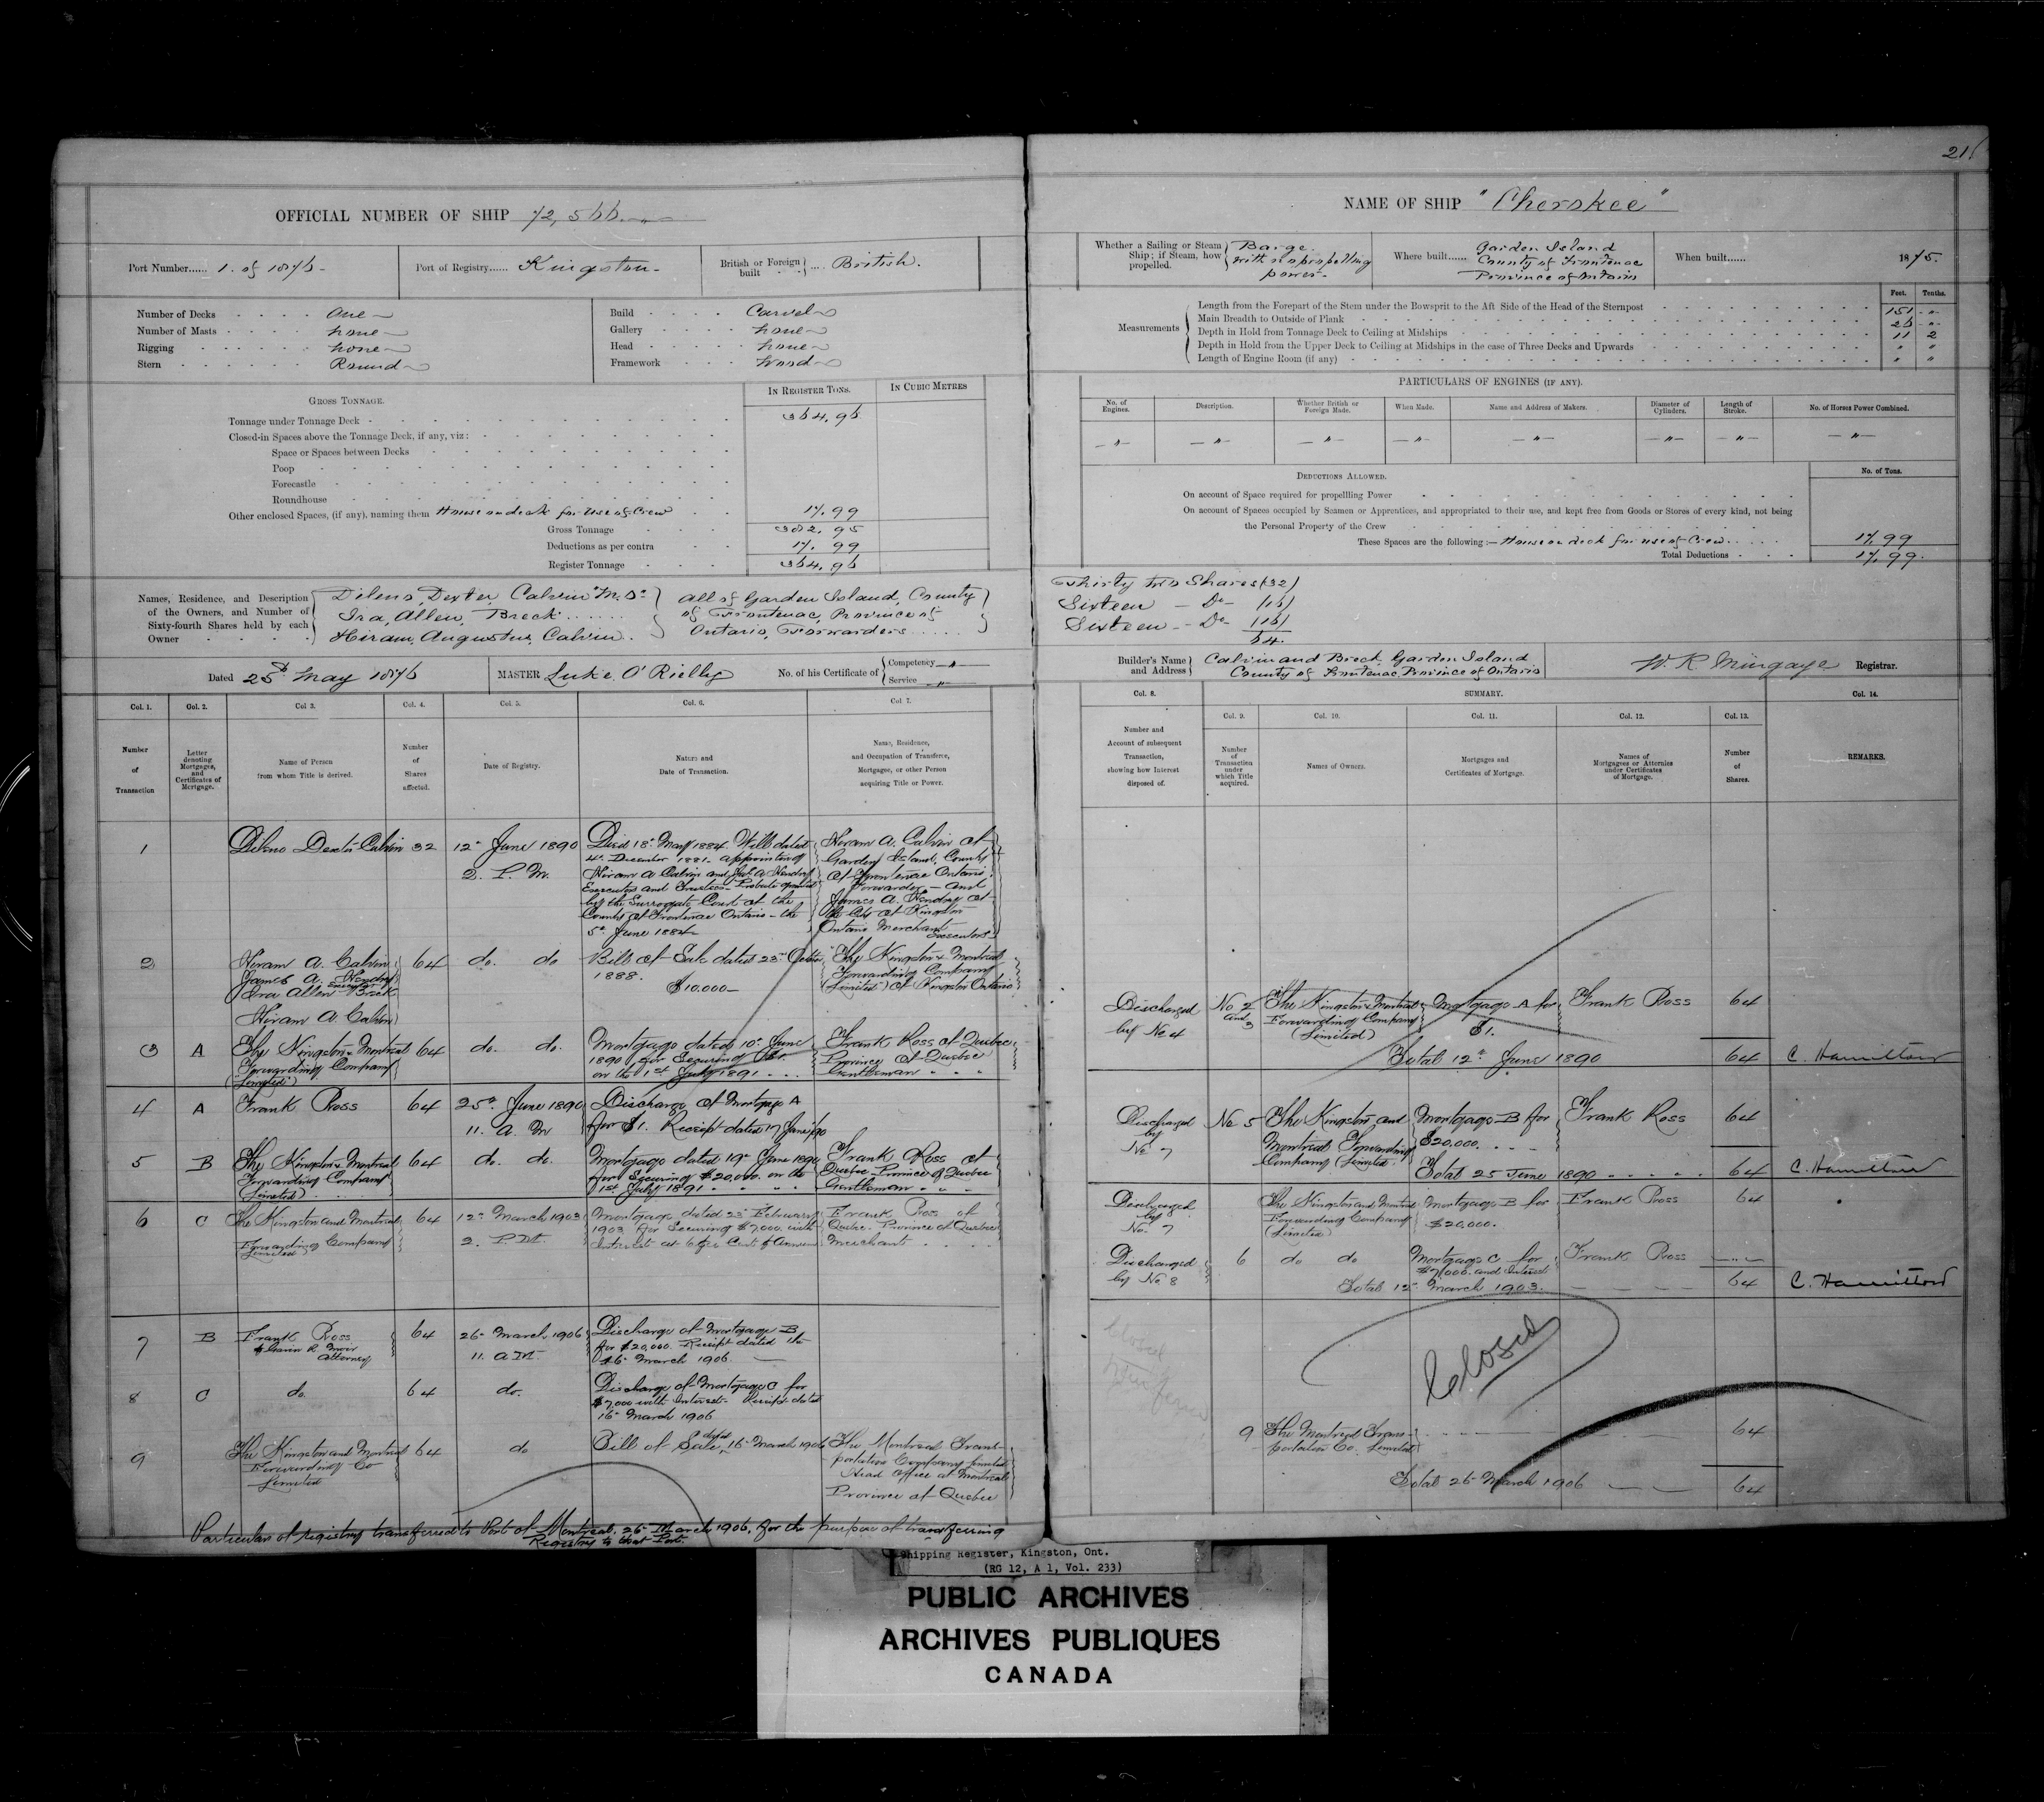 OFFICIAL NUMBER OF SHIP 72,566.
Port Number...... 1. of 1876-
Port of Registry...... Kingston-
British or Foreign built ... British.
Number of Decks One
Number of Masts none
Rigging none
Stern Round
Build Carvel
Gallery none
Head none
Framework Wood
GROSS TONNAGE.
IN REGISTER TONS.
IN CUBIC METRES
Tonnage under Tonnage Deck 364,96
Closed-in Spaces above the Tonnage Deck, if any, viz:
Space or Spaces between Decks
Poop
Forecastle
Roundhouse
Other enclosed Spaces, (if any), naming them House on deck for use of Crew 17.99
Gross Tonnage 382.95
Deductions as per contra 17.99
Register Tonnage 364.96
Names, Residence, and Description
of the Owners, and Number of
Sixty-fourth Shares held by each
Owner
Dileno, Dexter, Calvin
Ira, Allen, Breck
Hiram, Augustus, Calvin.
All of Garden Island, County
of Frontenac, Province of
Ontario, Forwarders
Dated 25 May 1876
MASTER Luke O'Rielly
No. of his Certificate of
Competency
Service
Col. 1.
Col. 2.
Col 3.
Col. 4.
Col. 5.
Col. 6.
Col 7.
Number of Transaction
Letter denoting Mortgages, and Certificates of Mortgage.
Name of Person from whom Title is derived.
Number of Shares affected.
Date of Registry.
Nature and Date of Transaction.
Name, Residence, and Occupation of Transferee, Mortgagee, or other Person acquiring Title or Power.
1 Dileno Dexter Calvin 32 12 June 1890 2. P. M.
Died 18 May 1884 Will dated
4 December 1881 appointing
Hiram A Calvin and Jas A Hendry
Executors and Trustees Probate granted
by the Surrogate Court of the
County of Frontenac Ontario the
5 June 1884
Hiram A. Calvin of
Garden Island, County
of Frontenac Ontario
Forwarder - and
James A. Hendry of
the City of Kingston
Ontario Merchant
Executors
2 Hiram A. Calvin
James A. Hendry
Executors
Ira Allen Breck
Hiram A. Calvin
64 do. do
Bill of Sale dated 23
1888.
$10.000-
The Kingston & Montreal
Forwarding Company
(Limited) of Kingston Ontario
3 A The Kingston & Montreal
Forwarding Company
(Limited)
64 do. do.
Mortgage dated 10 June
1890 for Securing $1.
on the 1st July 1891
Frank Ross of Quebec
Province of Quebec
Gentleman
4 A Frank Ross 64 25 June 1890
11. A. M
Discharge of Mortgage A
for $1. Receipt dated 17 June/90
5 B The Kingston & Montreal
Forwarding Company
(Limited)
64 do. do.
Mortgage dated 19 June 1890
for Securing $20,000. on the
1st July 1891
Frank Ross of
Quebec Province of Quebec
Gentleman
6 C The Kingston and Montreal
Forwarding Company
Limited
64 12 March 1903
2. P.M.
Mortgage dated 23 February
1903 for Securing $7,000. with
Interest at 6 per Cent Annum
Frank Ross of
Quebec Province of Quebec
Merchant
7 B Frank Ross
Attorney
64 26 March 1906
11. A M.
Discharge of Mortgage B
for $20,000. Receipt dated the
16 March 1906.
8 C do. 64 do.
Discharge of Mortgage C for
$7,000 with Interest Receipt dated
16 March 1906
9 The Kingston and Montreal
Forwarding Co
Limited
64 do
Bill of Sale dated 16 March 1906
The Montreal Trans-
portation Company Limited
Head Office at Montreal
Province of Quebec
Particulars of registry transferred to Port of Montreal. 26 March 1906, for the purpose of transferring
Registry to that Port.
NAME OF SHIP "Cherokee"
Whether a Sailing or Steam Ship; if Steam, how propelled.
Barge
with no propelling
power
Where built......
Garden Island
County of Frontenac
Province of Ontario
When built...... 1875.
Measurements
Feet. Tenths.
Length from the Forepart of the Stem under the Bowsprit to the Aft Side of the Head of the Sternpost 151 "
Main Breadth to Outside of Plank 26 "
Depth in Hold from Tonnage Deck to Ceiling at Midships 11 2
Depth in Hold from the Upper Deck to Ceiling at Midships in the case of Three Decks and Upwards " "
Length of Engine Room (if any) " "
PARTICULARS OF ENGINES (IF ANY).
No. of Engines.
Description.
Whether British or Foreign Made.
When Made.
Name and Address of Makers.
Diameter of Cylinders.
Length of Stroke.
No. of Horses Power Combined.
DEDUCTIONS ALLOWED.
No. of Tons.
On account of Space required for propellling Power
On account of Spaces occupied by Seamen or Apprentices, and appropriated to their use, and kept free from Goods or Stores of every kind, not being
the Personal Property of the Crew
These Spaces are the following:— House on deck for use of Crew 17.99
Total Deductions 17.99.
Thirty two Shares (32)
Sixteen - Do - (16)
Sixteen - Do (16)
64.
Builder's Name and Address
Calvin and Breck, Garden Island
County of Frontenac, Province of Ontario
W. R. Mingaye Registrar.
Col. 8.
SUMMARY.
Col. 14.
Col. 9.
Col. 10.
Col. 11.
Col. 12.
Col. 13.
Number and Account of subsequent Transaction, showing how Interest disposed of.
Number of Transaction under which Title acquired.
Names of Owners.
Mortgages and Certificates of Mortgage.
Names of Mortgagees or Attornies under Certificates of Mortgage.
Number of Shares.
REMARKS.
Discharged
by No 4
No 2
and 3
The Kingston & Montreal
Forwarding Company
(Limited)
Mortgage A for
$1.
Frank Ross 64
Total 12 June 1890 64 C. Hamilton
Discharged
by
No 7
No 5 The Kingston and
Montreal Forwarding
Company (Limited
Mortgage B for
$20,000.
Frank Ross 64
Total 25 June 1890 64 C. Hamilton
Discharged
by
No. 7
The Kingston and Montreal
Forwarding Company
(Limited)
Mortgage B for
$20,000.
Frank Ross 64
Discharged
by No 8
6 do do
Mortgage C for
$7,000. and Interest
Frank Ross
Total 12 March 1903. 64 C. Hamilton
Closed
9 The Montreal Trans-
portation Co. Limited
64
Total 26 March 1906 64
Shipping Register, Kingston, Ont.
(RG 12, A 1, Vol. 233)
PUBLIC ARCHIVES
ARCHIVES PUBLIQUES
CANADA